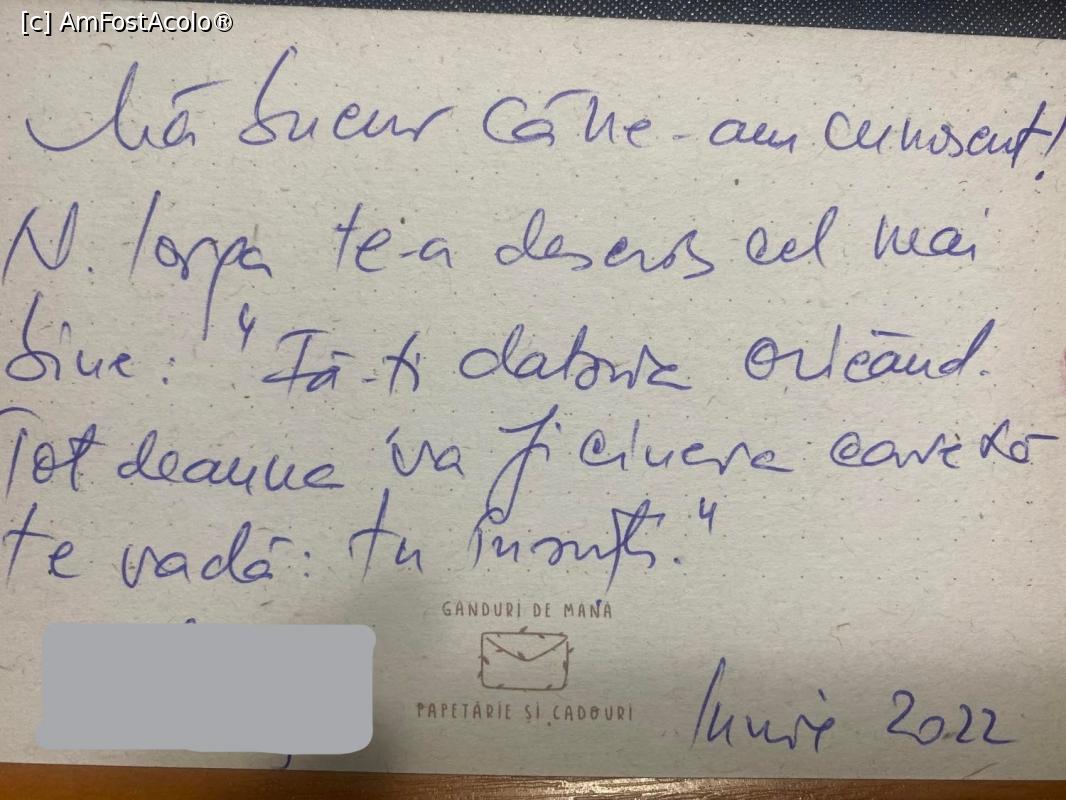 [c] AmFostAcolo®
Mă bucur că ne-am cunoscut!
N. Iorga te-a descris cel mai
bine: "Fă-ți datoria oricând.
Tot deauna va fi cineva care să
te vadă: tu însuți."
GANDURI DE MANA
PAPETĂRIE ȘI CADOURI
Iunie 2022